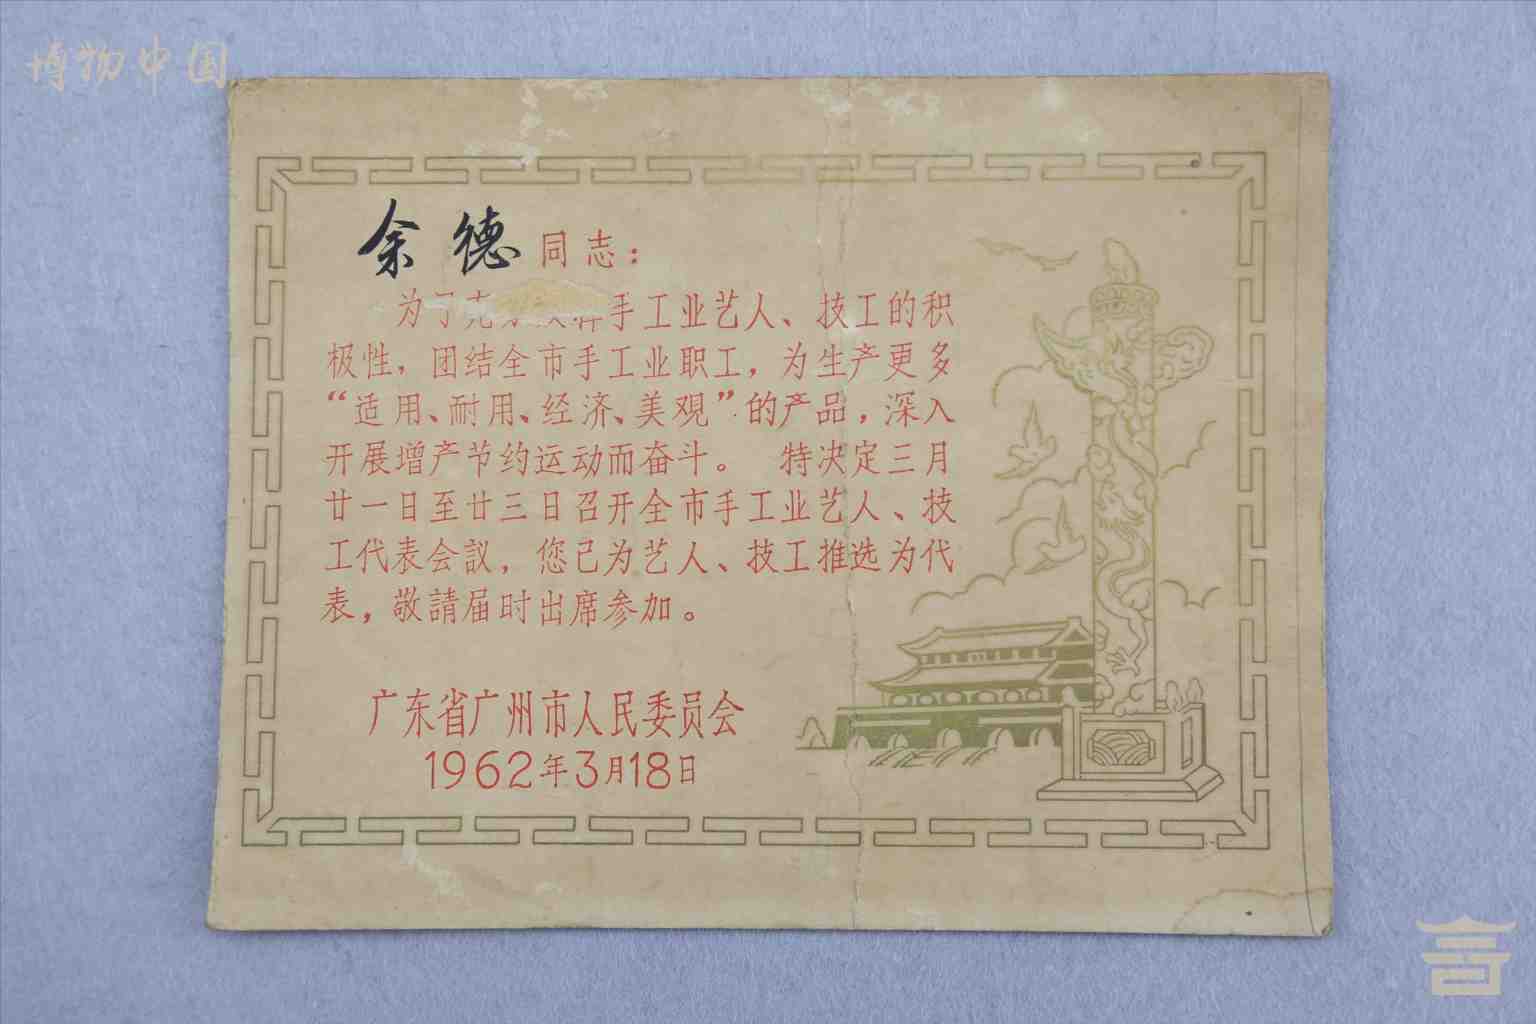 博物中国
余德同志：
为了充分发挥手工业艺人、技工的积
极性，团结全市手工业职工，为生产更多
“适用、耐用、经济、美观”的产品，深入
开展增产节约运动而奋斗。 特决定三月
廿一日至廿三日召开全市手工业艺人、技
工代表会議，您已为艺人、技工推选为代
表，敬請届时出席参加。
广东省广州市人民委员会
1962年3月18日